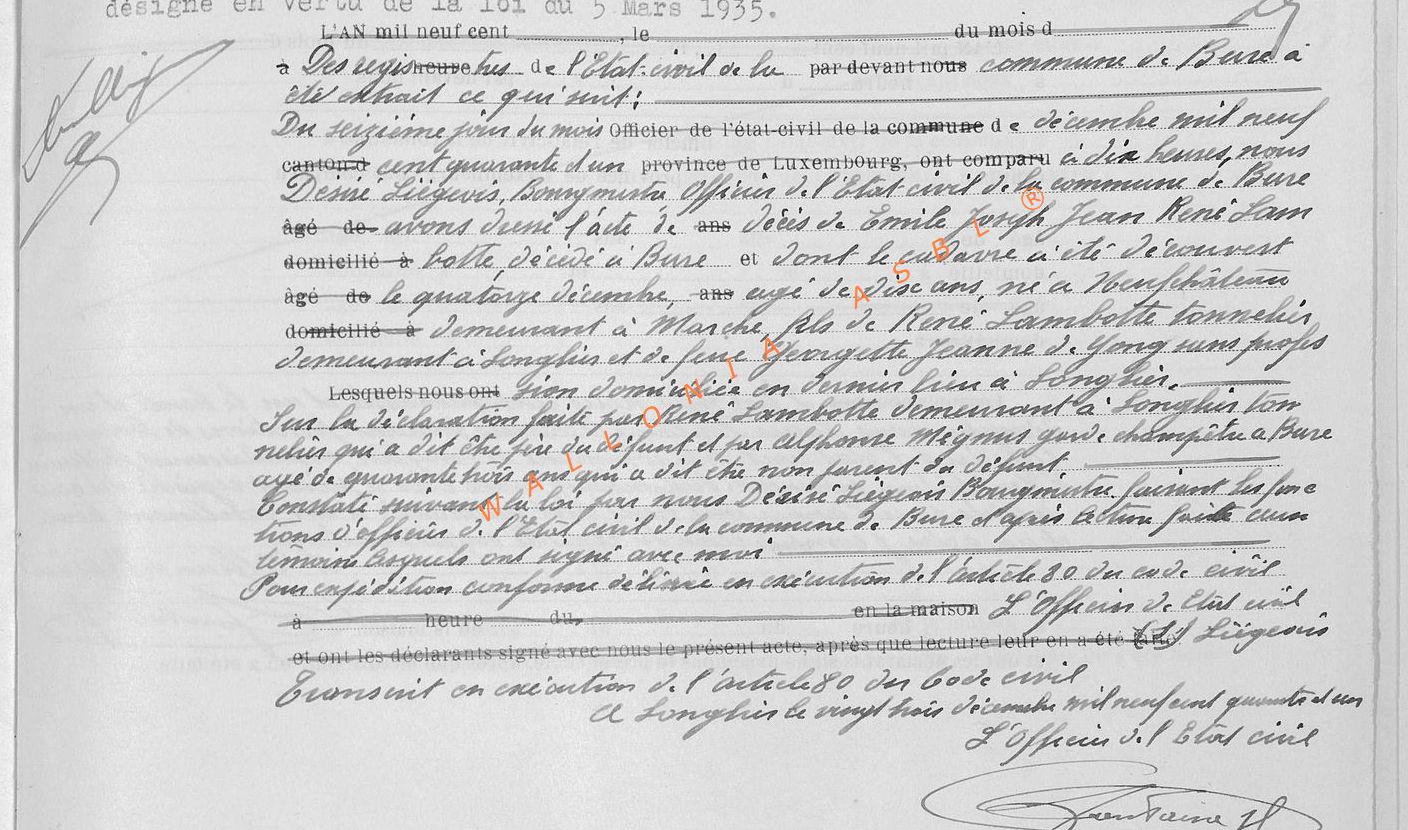 désigné en vertu de la loi du 5 Mars 1935.
L'AN mil neuf cent , le du mois d
à Des regis heure tres de l'Etat-civil de la par devant nous commune de Bure à
été extrait ce qui suit :
Du seizième jour du mois Officier de l'état-civil de la commune d e décembre mil neuf
canton d cent quarante et un province de Luxembourg, ont comparu à dix heures, nous
Désiré Liégeois, Bourgmestre, Officier de l'Etat-civil de la commune de Bure
âgé de avons dressé l'acte de ans décès de Emile Joseph Jean René Lam
domicilié à botte, décédé à Bure et dont le cadavre a été découvert
âgé de le quatorze décembre, ans agé de dix ans, né à Neufchâteau
domicilié à demeurant à Marche, fils de René Lambotte tonnelier
demeurant à Longlier et de feue Georgette Jeanne de Jong sans profes
Lesquels nous ont sion domiciliée en dernier lieu à Longlier.
Sur la déclaration faite par René Lambotte demeurant à Longlier ton
nelier qui a dit être père du défunt et par Alphonse Mégnus garde champêtre a Bure
agé de quarante trois ans qui a dit être non parent du défunt
Constaté suivant la loi par nous Désiré Liégeois Bourgmestre faisant les fonc
tions d'officier de l'Etat civil de la commune de Bure d'après lecture faite aux
témoins lesquels ont signé avec moi
Pour expédition conforme délivrée en exécution de l'article 80 du code civil
à heure du en la maison L'Officier de Etat civil
et ont les déclarants signé avec nous le présent acte, après que lecture leur en a été (s) Liégeois
Transcrit en exécution de l'article 80 du Code civil
A Longlier le vingt trois décembre mil neuf cent quarante et un
L'Officier de l'Etat civil
WALLONIA ASBL ®